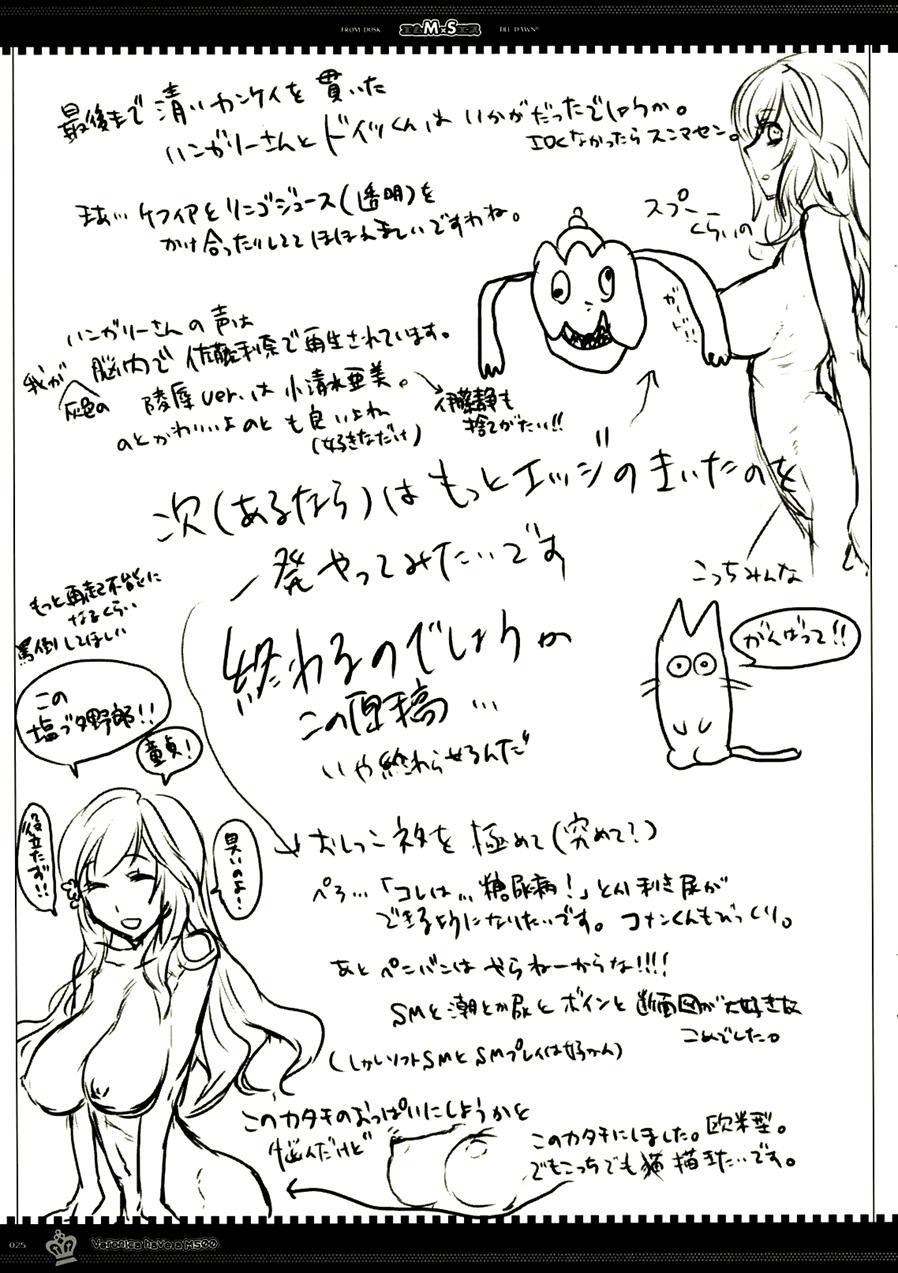 FROM DUSK
M×S
TILL DAWN!!
最後まで清いカンケイを貫いた
ハンガリーさんとドイツくんはいかがだったでしょうか。
エロくなかったらスンマセン。
まあ…ケフィアとリンゴジュース(透明)を
かけ合ったりしててほほえましいですわね。
スプー
くらいの
ハンガリーさんの声は
我が
灰色の
脳内で佐藤利奈で再生されています。
陵辱ver.は小清水亜美。
のとかわいいよのとも良いよね
(好きなだけ)
伊藤静も
捨てがたい!!
次(あるなら)はもっとエッジのきいたのを
一発やってみたいです
もっと再起不能に
なるくらい
罵倒してほしい
終わるのでしょうか
この原稿…
いや終わらせるんだ
こっちみんな
がんばって!!
この
塩ブタ野郎!!
童貞!
役立たず!!
臭いのよ!
おしっこネタを極めて(究めて?)
ぺろ…「コレは…糖尿病!」とか利き尿が
できるようになりたいです。コナンくんもびっくり。
あとペンバンはやらねーからな!!!!
SMと潮とか尿とボインと断面図が大好きな
こめでした。
(しかしソフトSMとSMプレイは好かん)
このカタチのおっぱいにしようかと
悩んだけど
このカタチにしました。欧米型。
でもこっちでも猫描きたいです。
025
Veronica have a M500